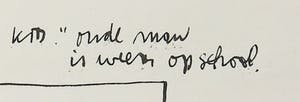 "oude man
is weer op school.